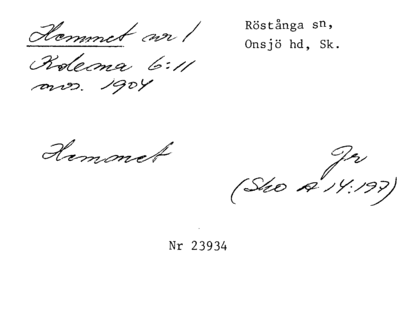 Hemmet nr 1
Röstånga sn,
Onsjö hd, Sk.
6:11
avs. 1904
Hemmet
Jr
(Sko A 14:197)
Nr 23934